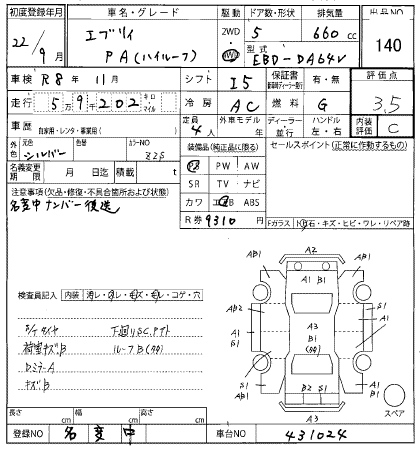 初度登録年月 車名・グレード 駆動 ドア数・形状 排気量 出品NO
22/9月 エブリイ PA(ハイルーフ) 2WD 5 660cc 140
型式 EBD-DA64V
車検 R8年11月 シフト I5 保証書 有・無 評価点
走行 5万9千202キロ マイル 冷房 AC 燃料 G 3.5
車歴 自家用・レンタ・事業用( ) 定員 4人 外車モデル 年 ディーラー 並行 ハンドル 左・右 内装評価 C
外色 元色 シルバー 色替 カラーNO Z2S 装備品(純正品に限る) セールスポイント(正常に作動するもの)
名義変更期限 月 日迄 積載 t PS PW AW
注意事項(欠品・修復・不具合箇所および状態) SR TV ナビ
名変中ナンバー後送 カワ エアB ABS
R券 9310円 Fガラス ト石・キズ・ヒビ・ワレ・リペア跡
検査員記入 内装 コゲ・穴
下廻りSC.
荷室キズB ルーフB
DミラーA
キズB
A2
AB1 A1 A1 AB1
B1
S1 AB2 A3 S1
A1 B1 A1
S1
AB1 B2 S1 A1 B1
A3
スペア
長さ cm 幅 cm 高さ cm
登録NO 名変中 車台NO 431024